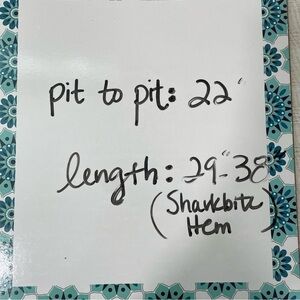 pit to pit: 22"
length: 29"-38
(Sharkbite
Hem)